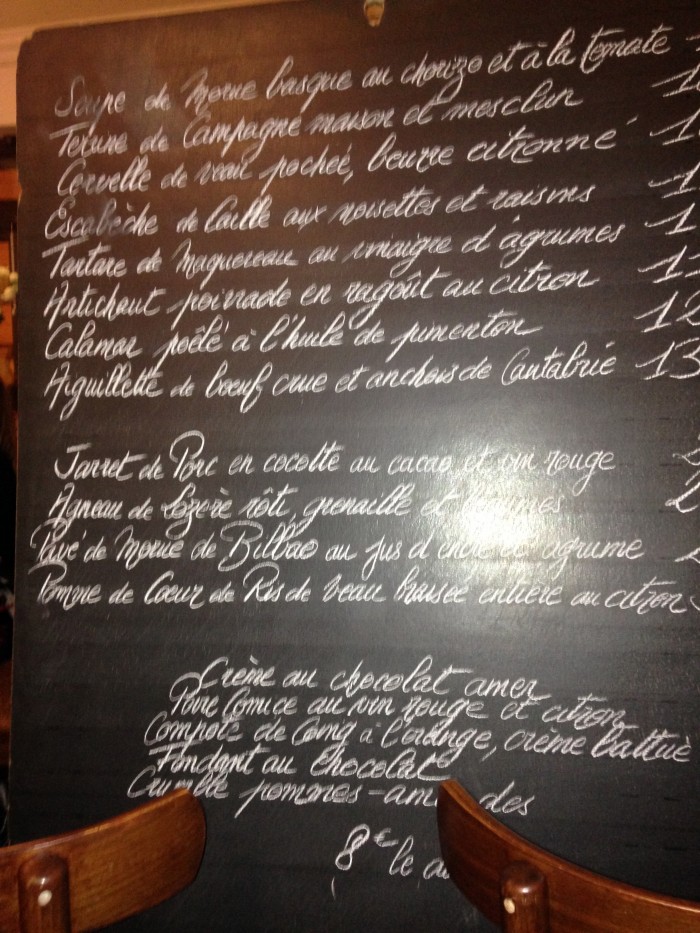 Soupe de Morue basque au chorizo et à la tomate -
Terrine de Campagne maison et mesclun 1
Cervelle de veau pochée, beurre citronné 1
Escabèche de Caille aux noisettes et raisins 1
Tartare de Maquereau au vinaigre d'agrumes 1
Artichaut poivrade en ragoût au citron 12
Calamar poêlé à l'huile de pimenton 12
Aiguillette de boeuf crue et anchois de Cantabrie 13
Jarret de Porc en cocotte au cacao et vin rouge 2
Agneau de Lozère rôti, grenaille et légumes 2
Pavé de Morue de Bilbao au jus d'encre et agrume 2
Pomme de Coeur de Ris de veau braisée entière au citron
Crème au chocolat amer
Poire Comice au vin rouge et citron
Compote de Coing à l'orange, crème battue
Fondant au Chocolat
Crumble pommes-amandes
8€ le